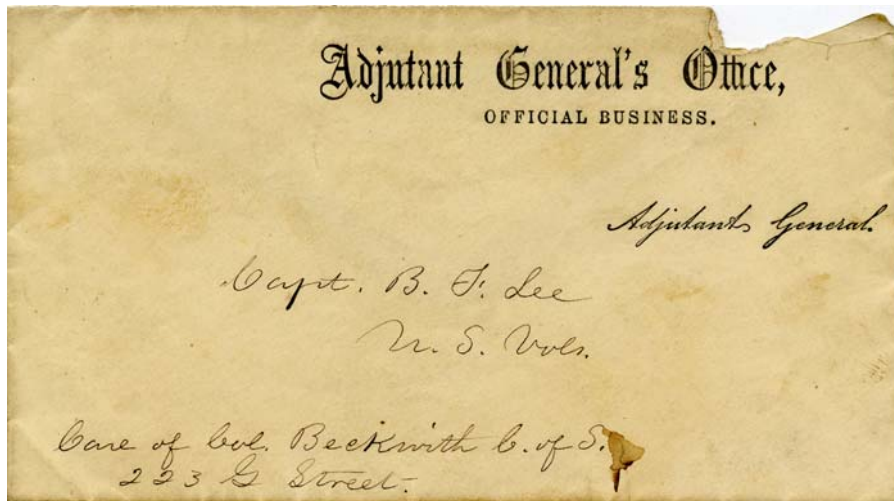 Adjutant General's Office,
OFFICIAL BUSINESS.
Adjutant General.
Capt. B. F. Lee
U. S. Vols.
Care of Col. Beckwith C. of S.
223 G Street.